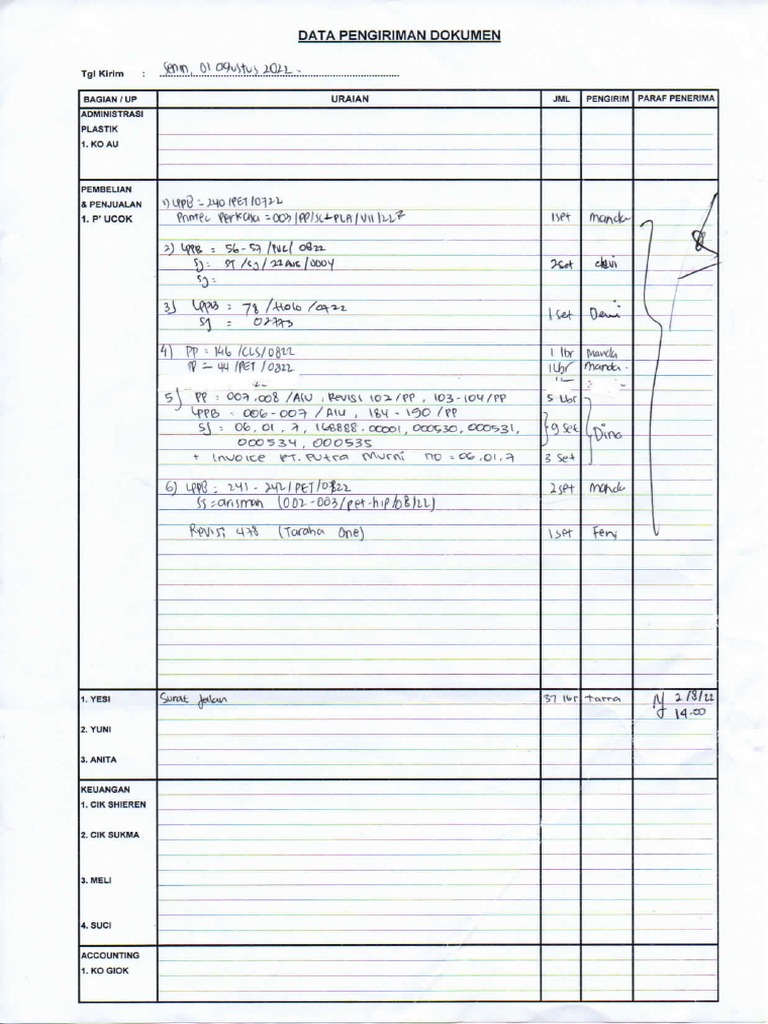 DATA PENGIRIMAN DOKUMEN
Tgl Kirim : Senin, 01 Agustus 2022.
BAGIAN / UP URAIAN JML PENGIRIM PARAF PENERIMA
ADMINISTRASI
PLASTIK
1. KO AU
PEMBELIAN
& PENJUALAN 1) LPPB = 240/PET/0722
1. P' UCOK Printec Perkasa = 003/PP/SC+PLA/VII/22 1 set Manda
2) LPPB : 56-57 /PVC/ 0822
SJ: ST/SJ/22AUG/0004 2 set
SJ:
3) LPPB : 78 /Holo /0722
SJ = 02773 1 set Dewi
4) PP : 146/CLS/0822 1 lbr Manda
PP = 44/PET/0822 1 lbr Manda.
5) PP : 007,008/AIU, Revisi 102/PP, 103-104/PP 5 lbr
LPPB : 006-007 /AIU, 184-190/PP
SJ : 06, 01, 7, 168888.00001, 000530, 000531, 9 set Dina
000534, 000535
+ Invoice PT. Putra Murni no = 06,01,7 3 set
6) LPPB: 241 - 242/PET/0822 2 set Manda
SS = arisman (002-003/pet-hip/08/22)
Revisi 478 (Taraha One) 1 set Feni
1. YESI Surat Jalan 37 lbr tarra 2/8/22
14.00
2. YUNI
3. ANITA
KEUANGAN
1. CIK SHIEREN
2. CIK SUKMA
3. MELI
4. SUCI
ACCOUNTING
1. KO GIOK